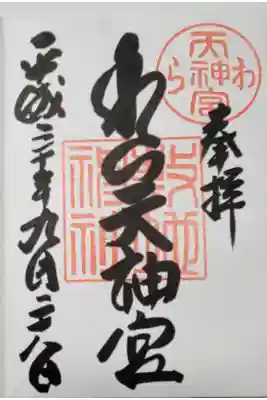 奉拝
わら
天神宮
わら天神宮
敷地
神社
平成三十年九月二八日